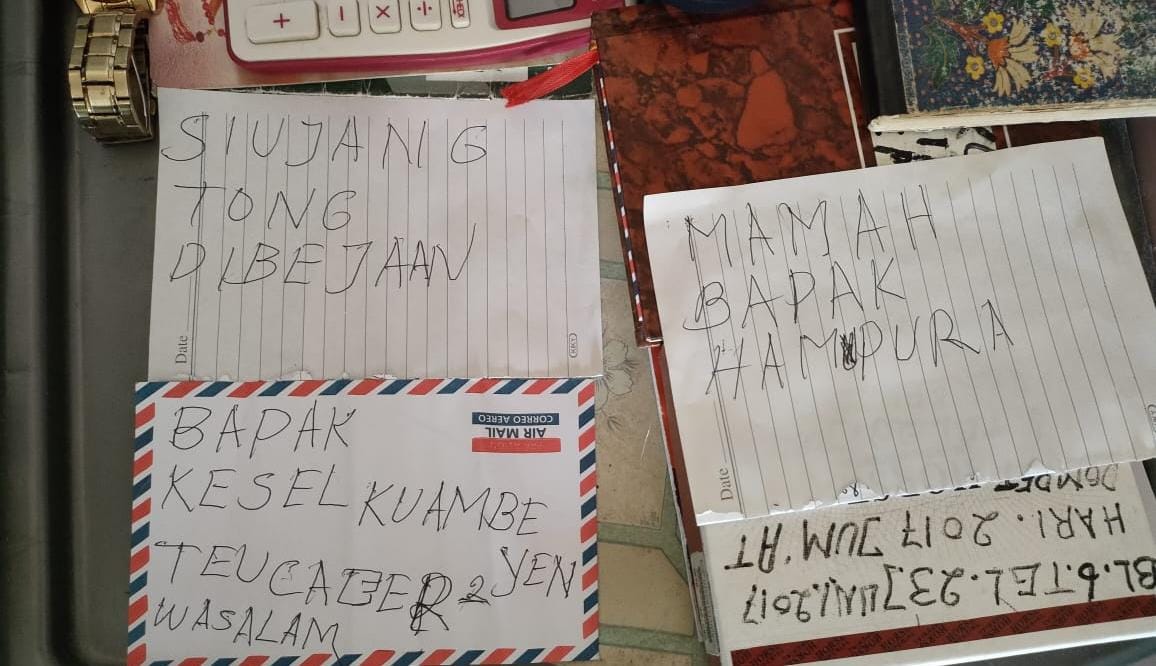 SIUJANG
TONG
DIBEJAAN
Date
BAPAK
KESEL KUAMBE
TEU CAGEER2 YEN
WASALAM
AIR MAIL
CORREO AEREO
MAMAH
BAPAK
HAMPURA
Date
HARI. 2017 JUM'AT
BL.6.TEL.23 JUNI.2017